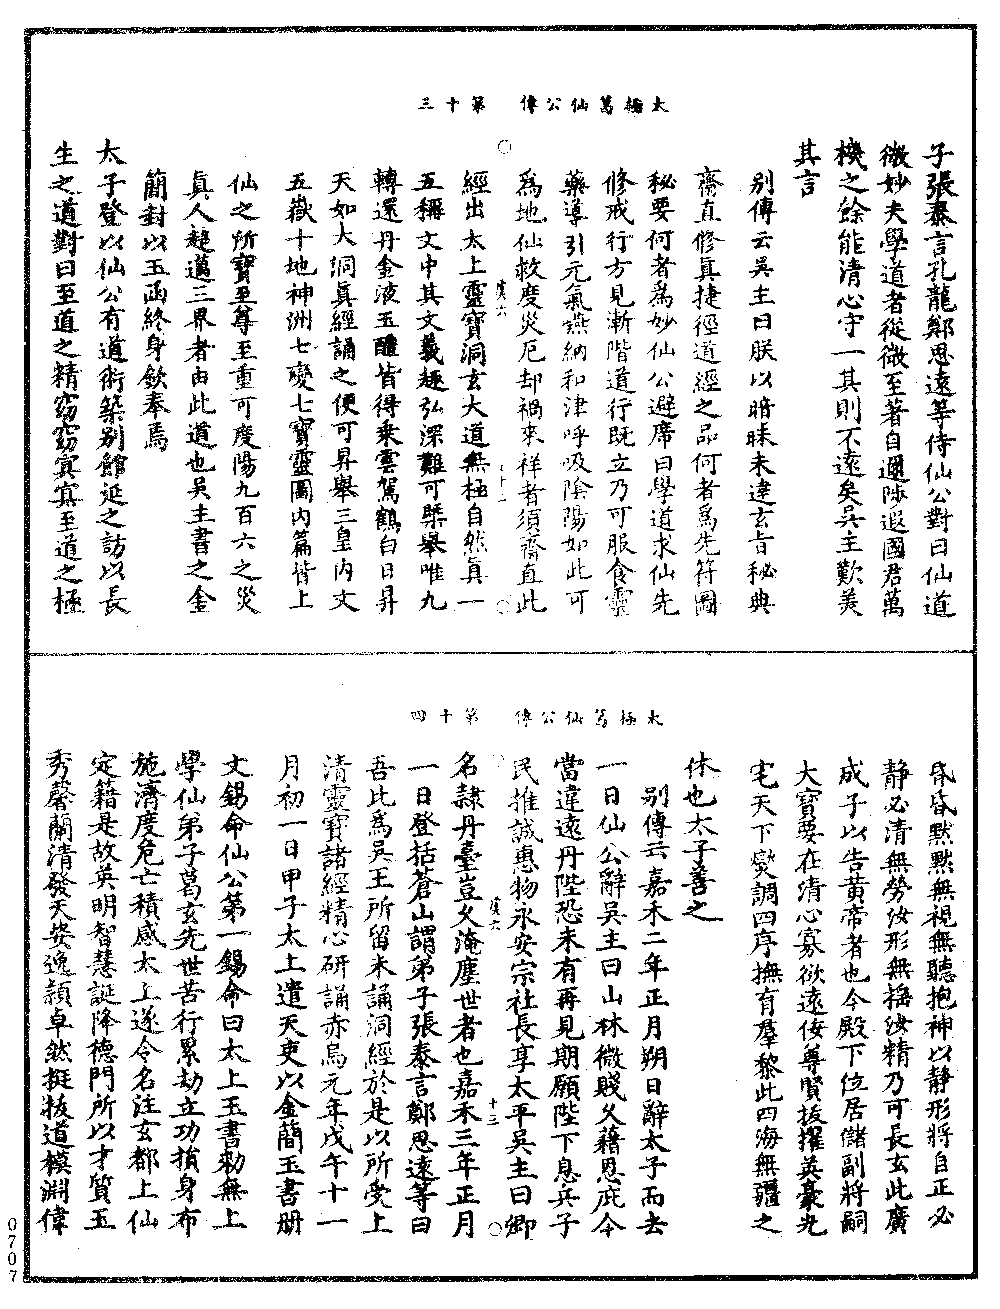 太極葛仙公傳　第十三
子張泰言孔龍鄭思遠等侍仙公對曰仙道
微妙夫學道者從微至著自邇陟遐國君萬
機之餘能清心守一其則不遠矣吳主歎美
其言
別傳云吳主曰朕以暗昧未達玄旨秘典
齋直修真捷徑道經之品何者爲先符圖
秘要何者爲妙仙公避席曰學道求仙先
修戒行方見漸階道行旣立乃可服食靈
藥導引元氣嚥納和津呼吸陰陽如此可
爲地仙救度災厄却禍來祥者須齋直此
經出太上靈寶洞玄大道無極自然真一
五稱文中其文義趣弘深難可槩舉唯九
轉還丹金液玉醴皆得乘雲駕鶴白日昇
天如大洞真經誦之便可昇舉三皇內文
五嶽十地神洲七變七寶靈圖內篇皆上
仙之所寶至尊至重可度陽九百六之災
真人超邁三界者由此道也吳主書之金
簡封以玉函終身欽奉焉
太子登以仙公有道術築別館延之訪以長
生之道對曰至道之精窈窈冥冥至道之極
太極葛仙公傳　第十四
昏昏默默無視無聽抱神以靜形將自正必
靜必清無勞汝形無搖汝精乃可長玄此廣
成子以告黃帝者也今殿下位居儲副將嗣
大寶要在清心寡欲遠佞尊賢拔擢英豪光
宅天下燮調四序撫有羣黎此四海無疆之
休也太子善之
別傳云嘉禾二年正月朔日辭太子而去
一日仙公辭吳主曰山林微賤父藉恩庇今
當違遠丹陛恐未有再見期願陛下息兵子
民推誠惠物永安宗社長享太平吳主曰卿
名隷丹臺豈久淹塵世者也嘉禾三年正月
一日登括蒼山謂弟子張泰言鄭思遠等曰
吾此爲吳王所留未誦洞經於是以所受上
清靈寶諸經精心研誦赤烏元年戊午十一
月初一日甲子太上遣天吏以金簡玉書册
文錫命仙公第一錫命曰太上玉書勑無上
學仙弟子葛玄先世苦行累劫立功損身布
施濟度危亡積感太上遂令名注玄都上仙
定籍是故英明智慧誕降德門所以才質玉
秀馨蘭清發天姿逸穎卓然挺拔道模淵偉
0707